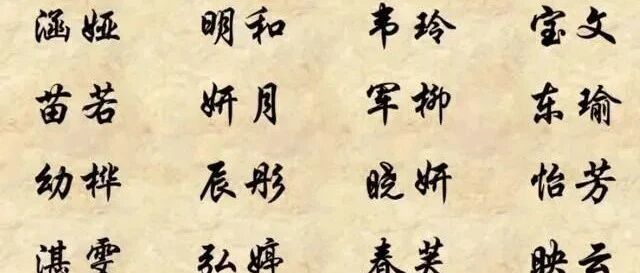 涵娅 明和 韦玲 宝文
苗若 妍月 军柳 东瑜
幼桦 辰彤 晓妍 怡芳
湛雯 弘婷 春芙 映云